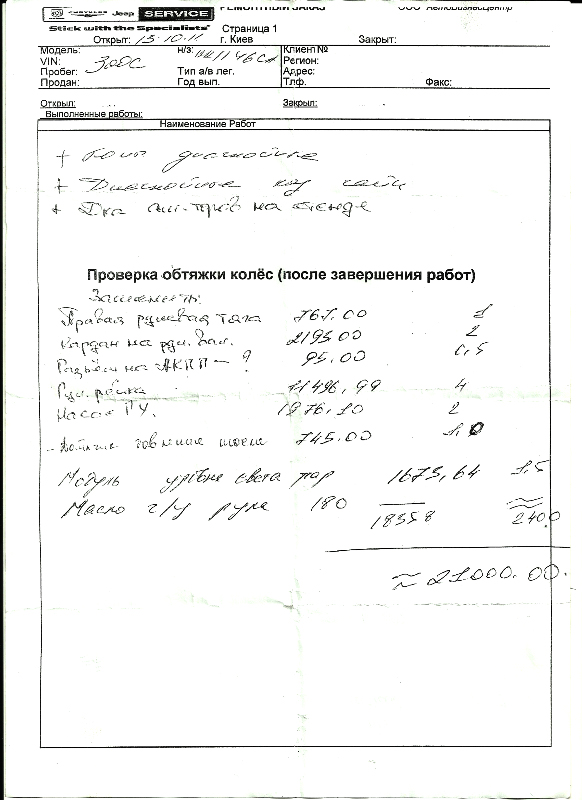 Jeep SERVICE РЕМОНТНЫЙ ЗАКАЗ ООО Автобизнесцентр
Stick with the Specialists Страница 1
Открыт: 15.10.11 г. Киев Закрыт:
Модель: н/з: Клиент №
VIN: 300С Регион:
Пробег: Тип а/в лег. Адрес:
Продан: Год вып. Тлф. Факс:
Открыл: Закрыл:
Выполненные работы:
Наименование Работ
+ диагностика
+ Диагностика
+ на стенде
Проверка обтяжки колёс (после завершения работ)
Заменить:
Правая рулевая тяга 767.00 1
Кардан на рул. вал. 2193.00 2
Разъём на АКПП - ? 95.00 0,5
Рул. рейка 11496,99 4
Насос ГУ. 1976.10 2
- Датчик давления масла 745.00 1.0
Модуль света фар 1673,64 1.5
Масло г/у руля 180 18558 ≈ 2400
≈ 21000.00.